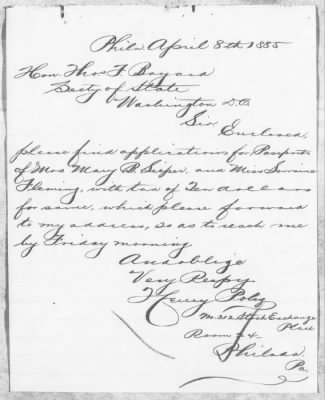 Phila April 8th 1885
Hon. Thos F Bayard
Secty of State
Washington D.C.
Sir
Enclosed,
please find applications for Passports
of Mrs Mary B. and Miss
Fleming, with tax of Ten dollars
for same, which please forward
to my address, so as to reach me
by Friday morning
And oblige
Very Respy
Henry
No. 312 Stock Exchange
Place
Room 24
Philada.
Pa.